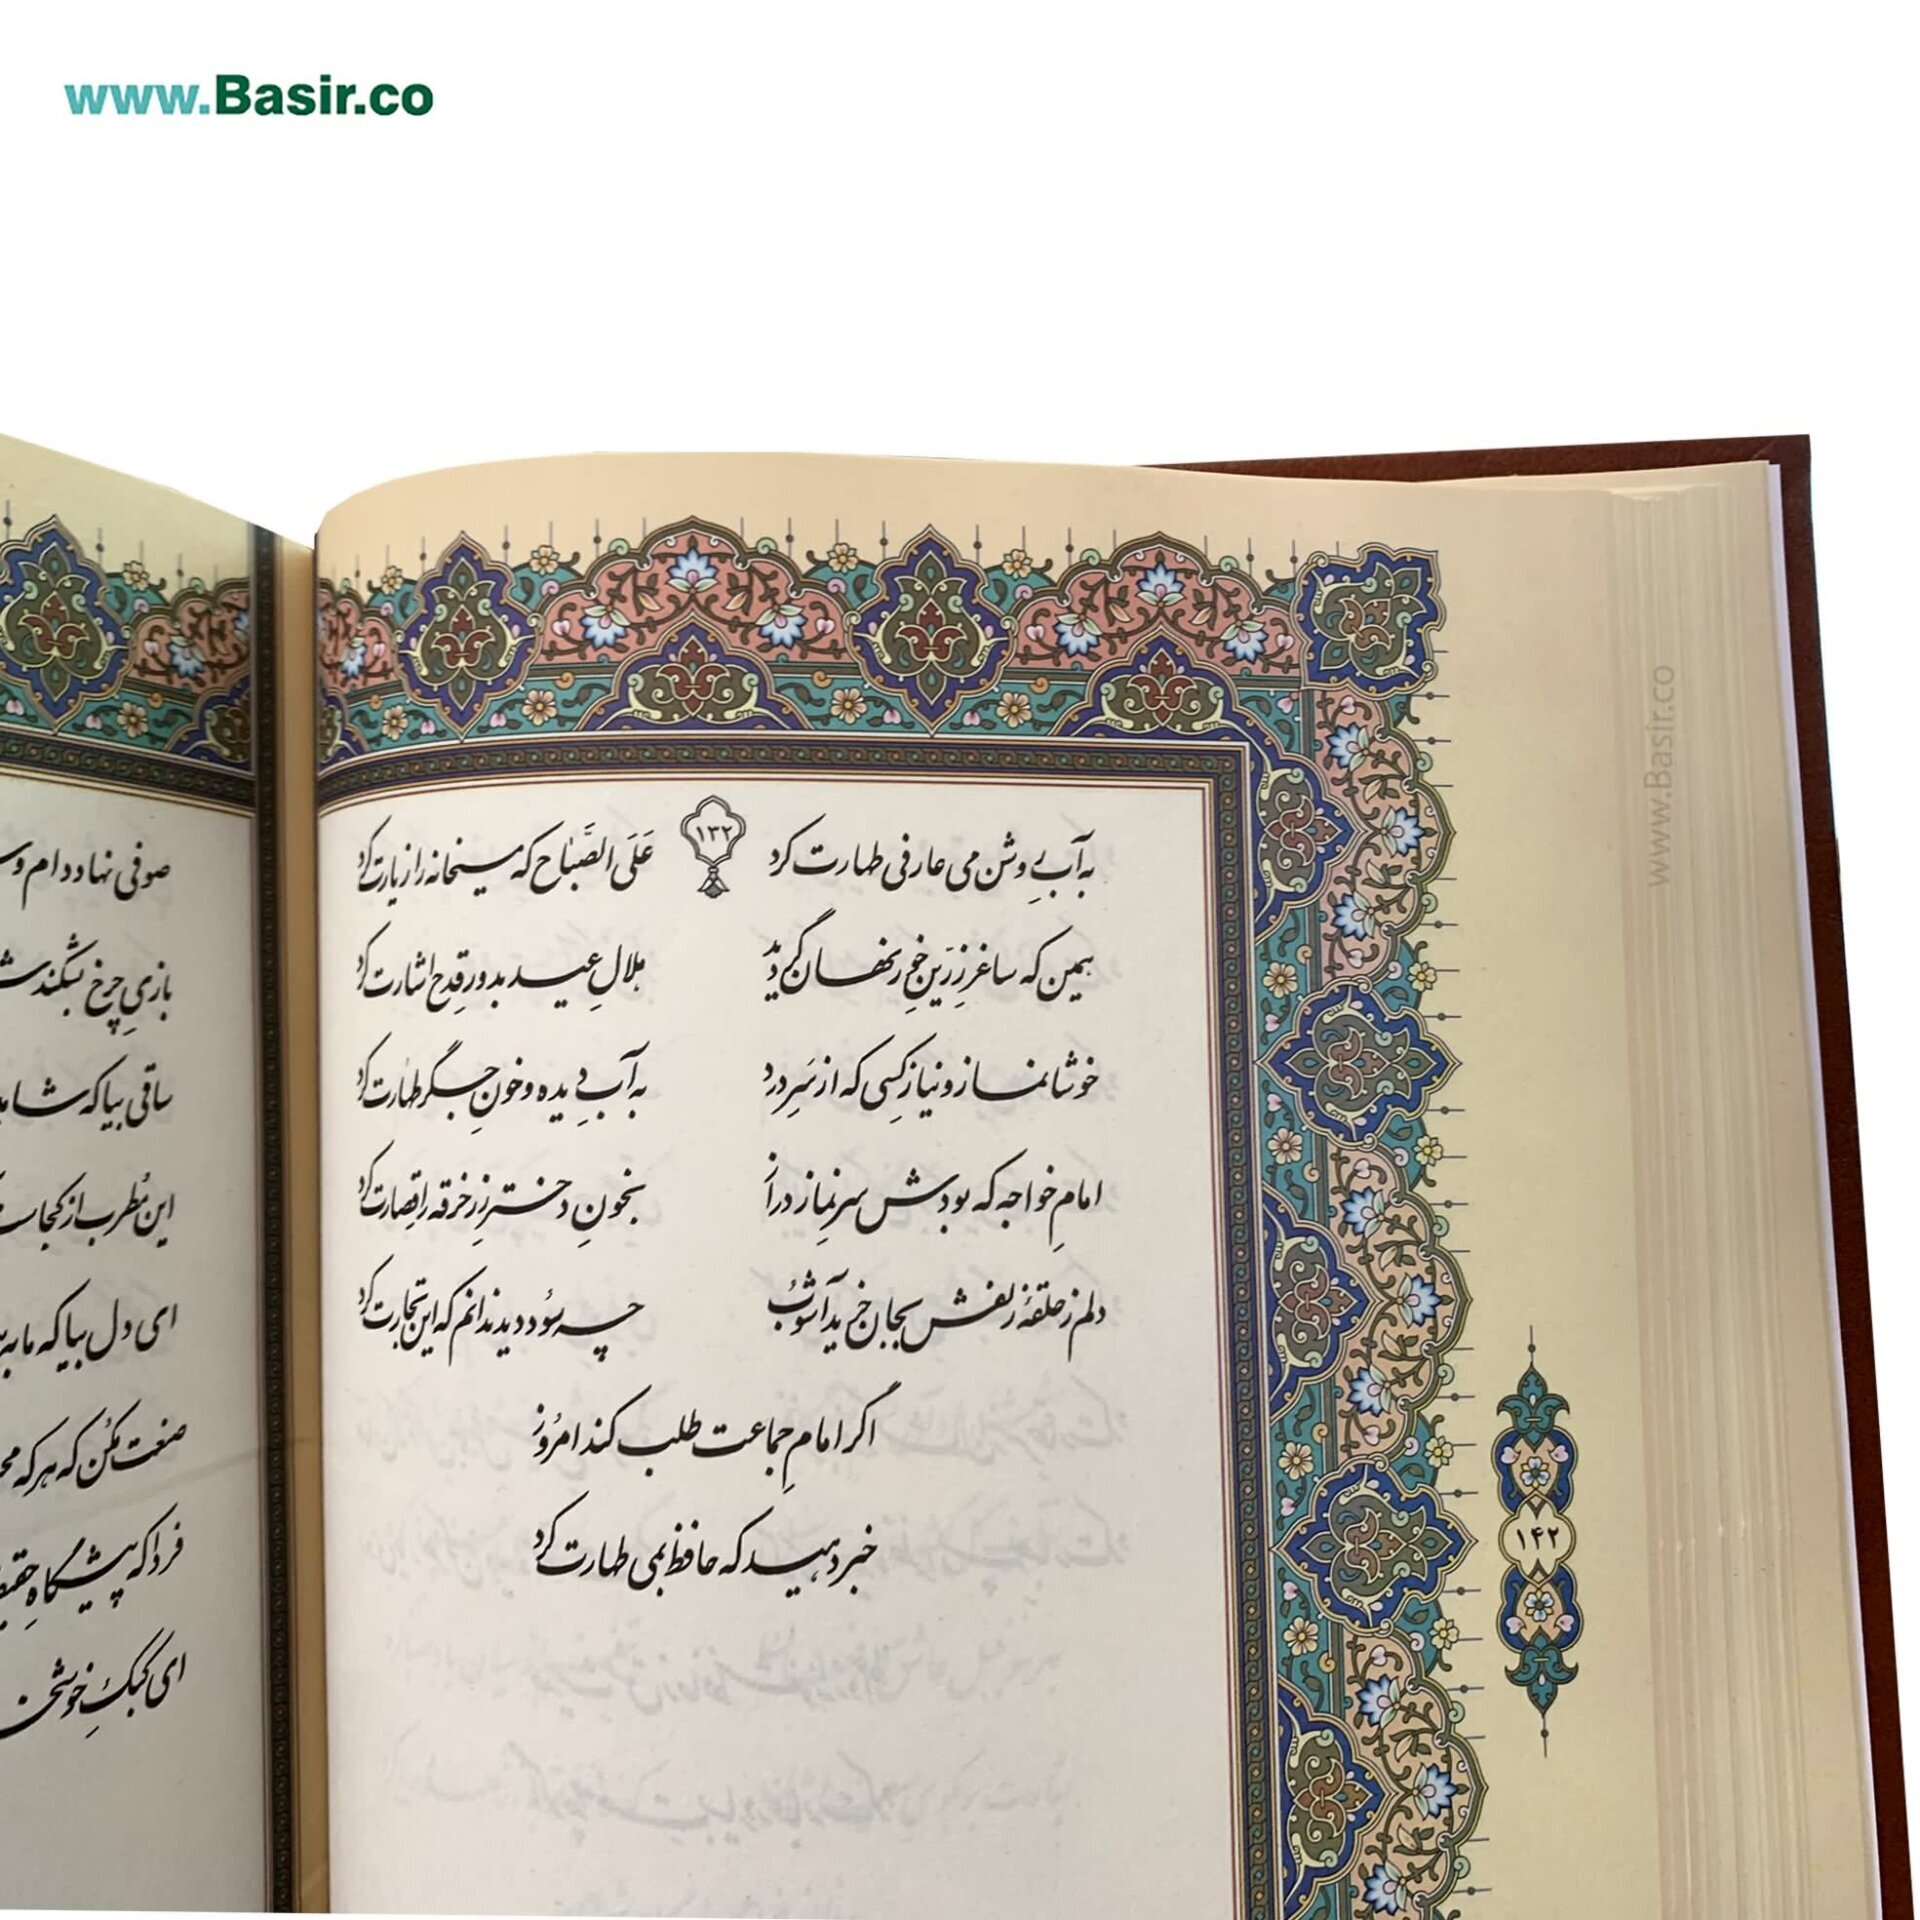 www.Basir.co
۱۳۲
به آبِ روشن می عارفی طهارت کرد عَلَی الصَّباح که میخانه را زیارت کرد
همین که ساغرِ زرّینِ خور نهان گردید هلالِ عید بدورِ قدح اشارت کرد
خوشا نماز و نیازِ کسی که از سَرِ درد به آبِ دیده و خونِ جگر طهارت کرد
امامِ خواجه که بودش سرِ نمازِ دراز بخونِ دخترِ رز خرقه را قصارت کرد
دلم ز حلقهٔ زلفش بجان خرید آشوب چه سود دید ندانم که این تجارت کرد
اگر امامِ جماعت طلب کند امروز
خبر دهید که حافظ بمی طهارت کرد
۱۴۲
www.Basir.co
صوفی نهاد دام و
بازیِ چرخ بشکند
ساقی بیا که
این مُطرب از کجاست
ای دل بیا که ما
صنعت مکُن که هر که
فردا که پیشگاهِ
ای کبکِ